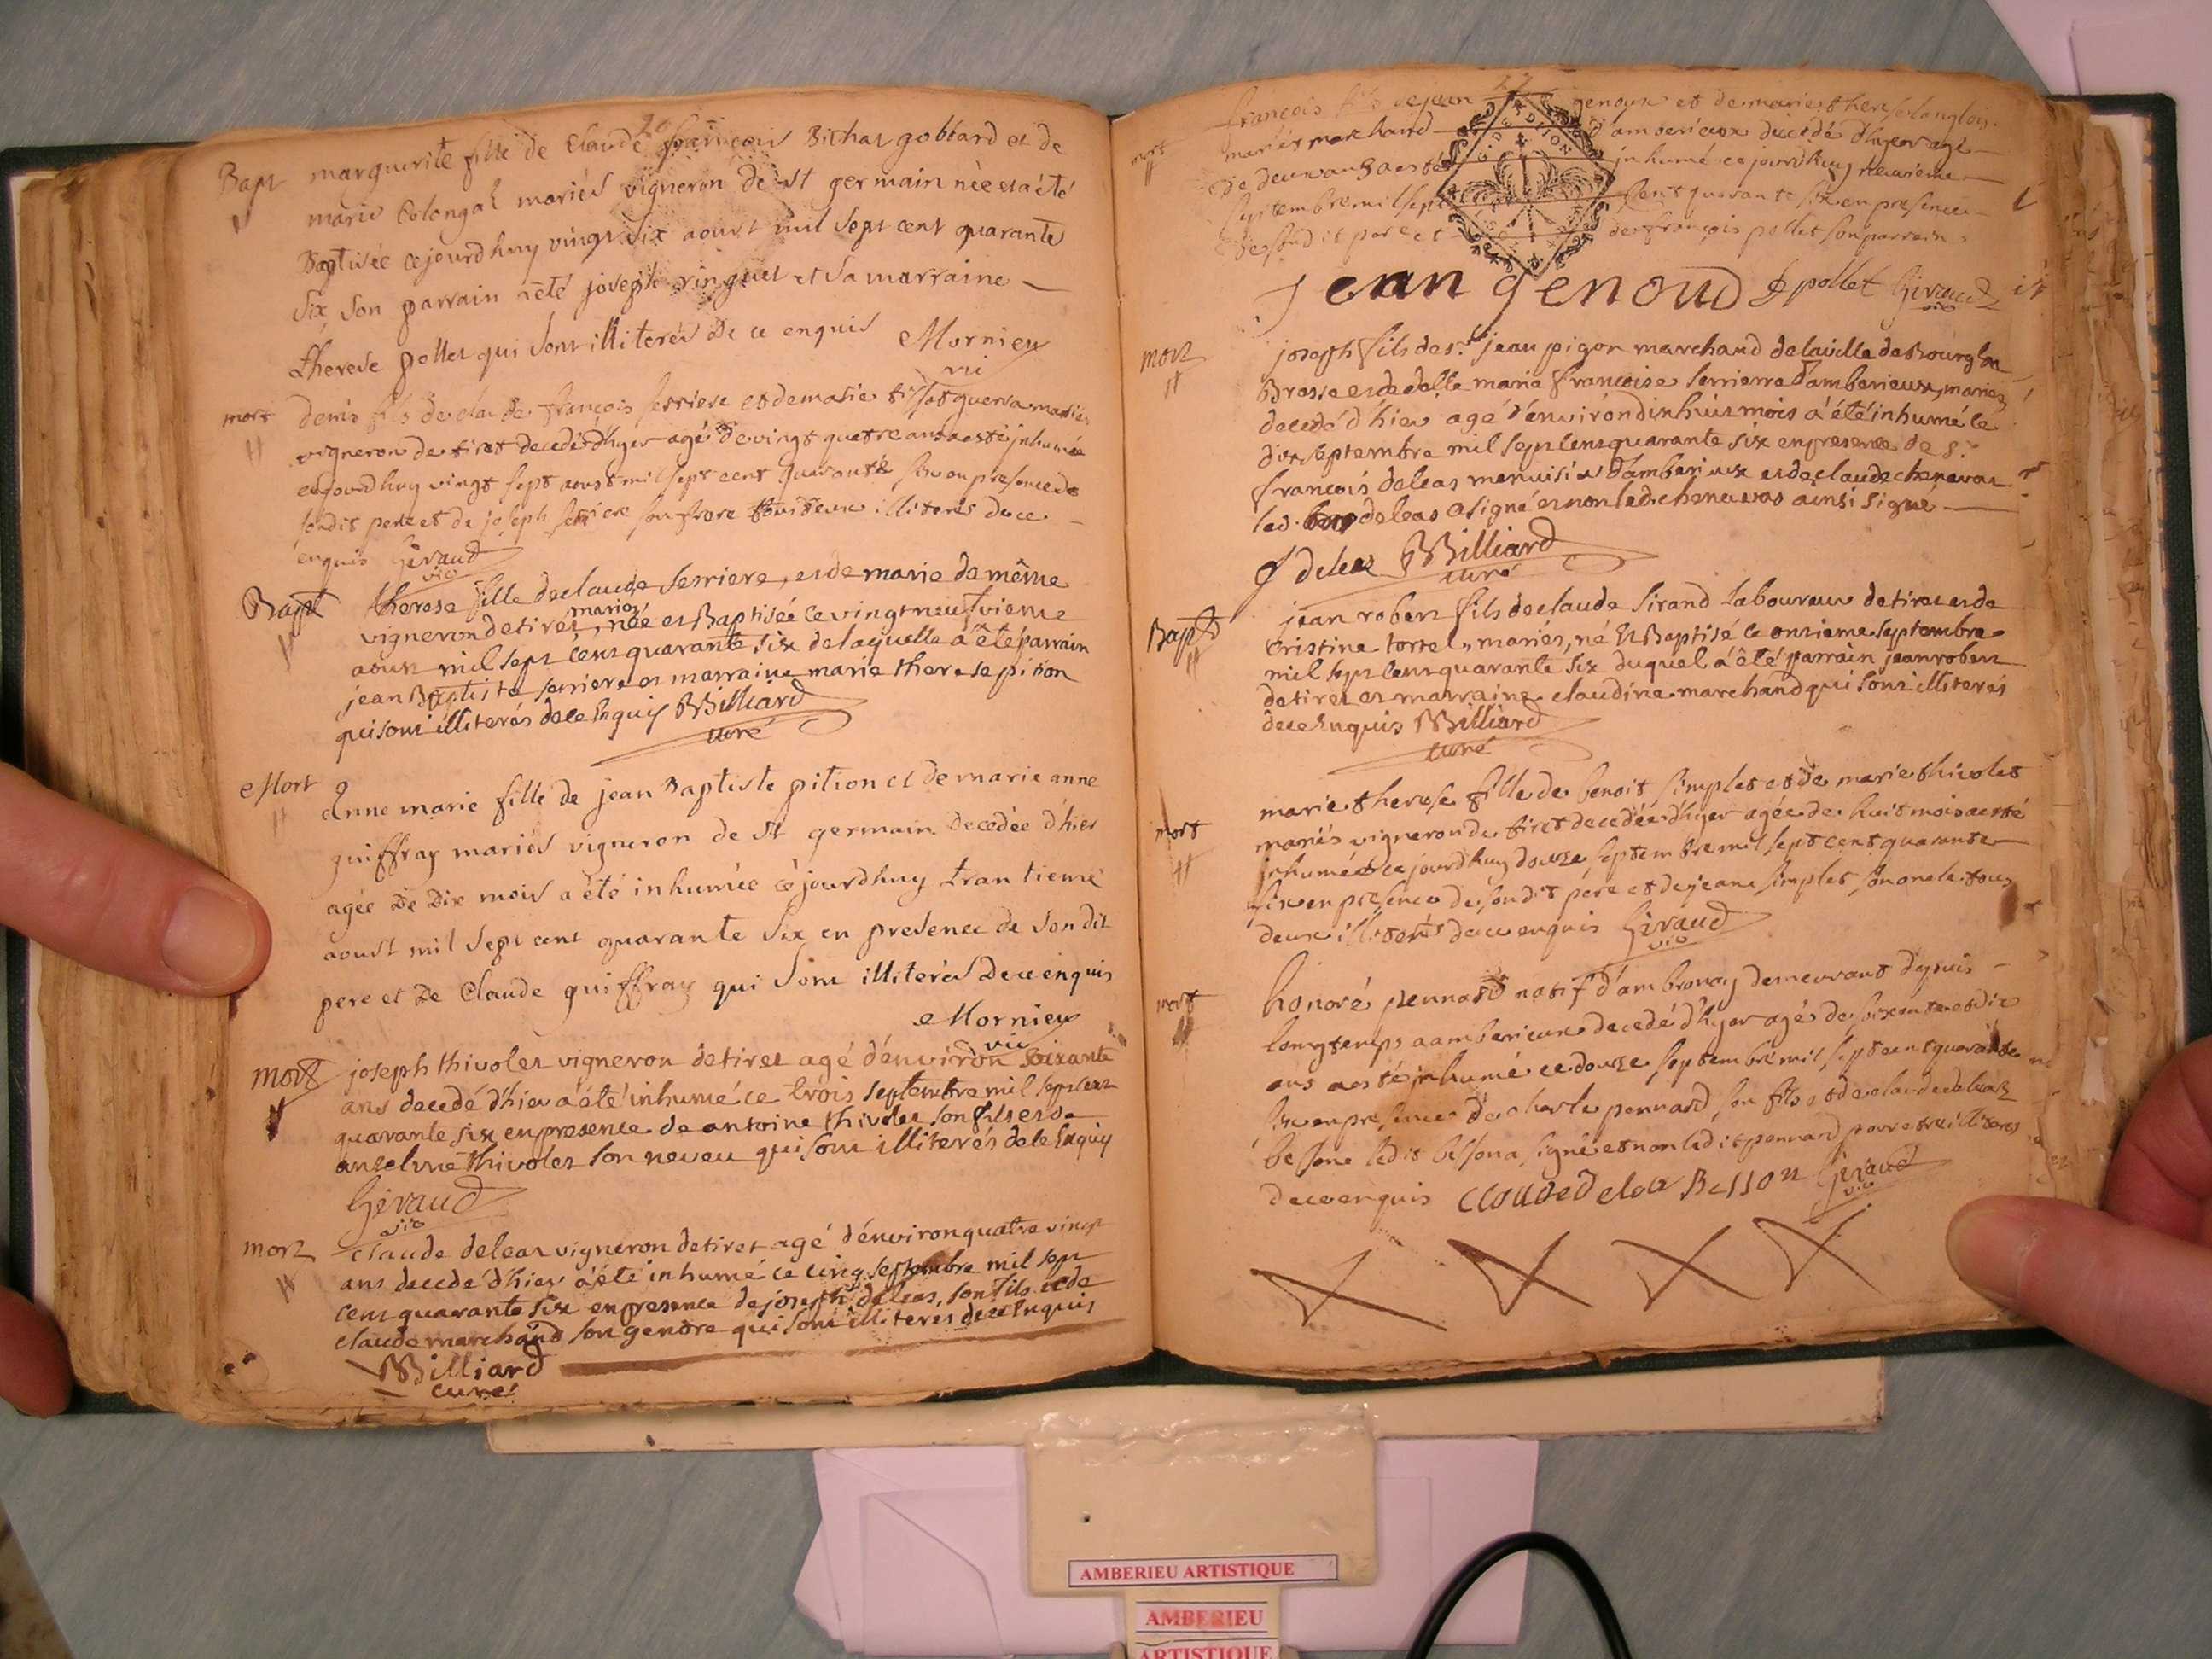 20
Bapt
marguerite fille de Claude françois Bichat gobbard et de
marie Colongat mariés vigneron de st germain née et a été
Baptisée cejourdhuy vingt six aoust mil sept cent quarante
Six, Son parrain a été joseph ringuet et Sa marraine
therese pollet qui sont illiterés De ce enquis Mornieu
vic
mort
denis fils de claude françois serriere et de marie guerra mariés
vigneron de tiret decedé d'hyer agé de vingt quatre ans a esté inhumé
cejourdhuy vingt sept aoust mil sept cent quarante six en presence de
sondit pere et de joseph serriere son frere tous deux illiterés de ce
enquis Géraud
vic
Bapt
therese fille de claude Serriere, et de marie de même
mariez
vigneron de tiret, née et Baptisée ce vingt neufvieme
aoust mil sept cent quarante six de laquelle a été parrain
jean Baptiste serriere et marraine marie therese pition
qui sont illiterés de ce Enquis Billiard
curé
Mort
Anne marie fille de jean Baptiste pition et de marie anne
guiffray mariés vigneron de st germain decedée d'hier
agée De Dix mois a été inhumée cejourdhuy trantieme
aoust mil sept cent quarante Six en presence de son dit
pere et De Claude guiffray qui sont illiterés De ce enquis
Mornieu
vic
mort
joseph thivolet vigneron de tiret agé d'environ soixante
ans decedé d'hier a été inhumé ce trois septembre mil sept cent
quarante six en presence de antoine thivolet son fils et de
anselme thivolet son neveu qui sont illiterés de ce Enquis
Géraud
vic
mort
claude deleas vigneron de tiret agé d'environ quatre vingt
ans decedé d'hier a été inhumé ce cinq septembre mil sept
cent quarante six en presence de joseph deleas, son fils et de
claude marchand son gendre qui sont illiterés de ce Enquis
Billiard
curé
mort
françois fils de jean genoux et de marie therese langlois
mariés marchand d'amberieux decedé d'hyer agé
de deux ans a esté inhumé ce jourdhuy neuvieme
septembre mil sept cent quarante six en presence
de sondit pere et de françois pollet son parrain
jean genoud f pollet Géraud
vic
mort
joseph fils de sr jean pigon marchand de la ville de Bourg en
Bresse et de delle marie françoise serriere d'amberieux, mariez
decedé d'hier agé d'environ dix huit mois a été inhumé le
dix septembre mil sept cent quarante six en presence de sr
françois deleas menuisier d'amberieux et de claude chenavas
led. deleas a signé et non led. chenavas ainsi signé
f deleas Billiard
curé
Bapt
jean robert fils de claude Sirand laboureur de tiret et de
Cristine tortel, mariés, né Et Baptisé ce onzieme septembre
mil sept cent quarante six duquel a été parrain jean robert
de tiret et marraine claudine marchand qui sont illiterés
de ce Enquis Billiard
curé
mort
marie therese fille de benoit simplet et de marie thivolet
mariés vigneron de tiret decedée d'hyer agée de huit mois a esté
inhumée ce jourdhuy douze septembre mil sept cent quarante
six en presence de sondit pere et de jean simplet son oncle tous
deux illiterés de ce enquis Géraud
vic
mort
honoré pennard natif d'ambronay demeurant depuis
longtemps a amberieux decedé d'hyer agé de soixante et dix
ans a esté inhumé ce douze septembre mil sept cent quarante
six en presence de charle pennard son fils et de claude delas
bessone ledit besson a signé et non ledit pennard pour etre illiteré
de ce enquis claude delas Besson Géraud
vic
AMBERIEU ARTISTIQUE
AMBERIEU
ARTISTIQUE